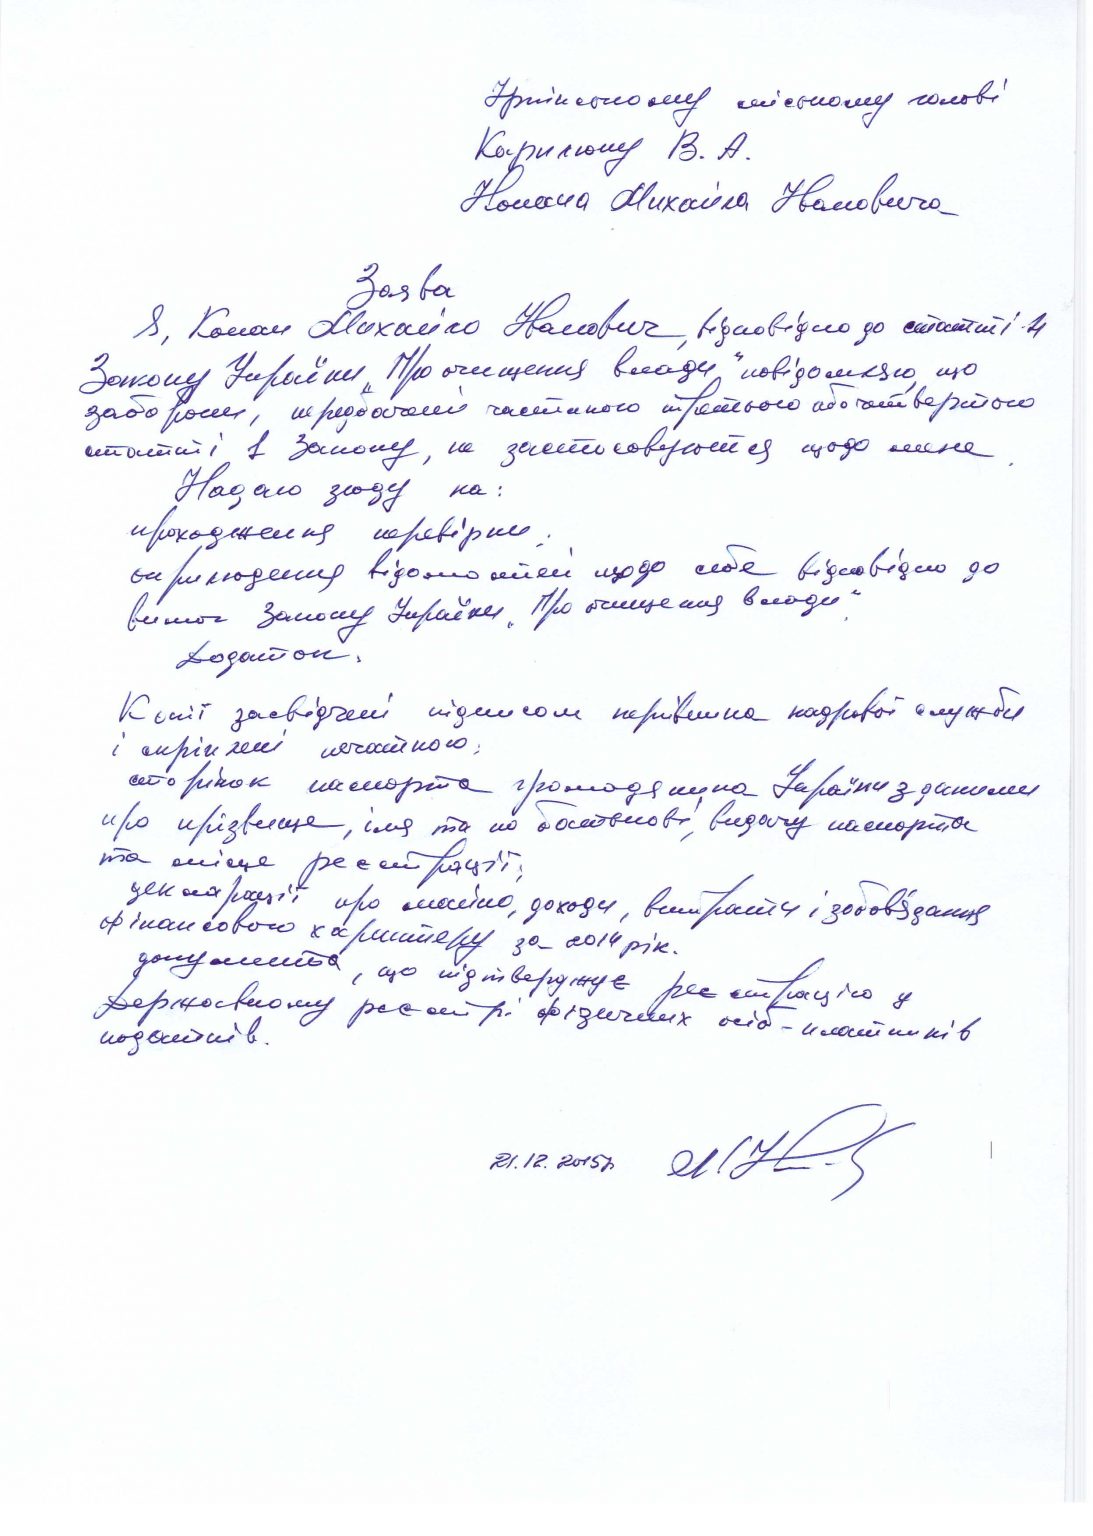 Ірпінському міському голові
Карплюку В. А.
Конана Михайла Івановича
Заява
Я, Конан Михайло Іванович, відповідно до статті 4
Закону України „Про очищення влади" повідомляю, що
заборони, передбачені частиною третьою або четвертою
статті 1 Закону, не застосовуються щодо мене.
Надаю згоду на:
проходження перевірки;
оприлюдення відомостей щодо себе відповідно до
вимог Закону України „Про очищення влади".
Додаток:
Копії засвідчені підписом керівника кадрової служби
і скріплені печаткою:
сторінок паспорта громадянина України з даними
про прізвище, імя та по батькові, видачу паспорта
та місце реєстрації;
декларації про майно, доходи, витрати і зобов'язання
фінансового характеру за 2014 рік.
документа, що підтверджує реєстрацію у
Державному реєстрі фізичних осіб-платників
податків.
21.12.2015р